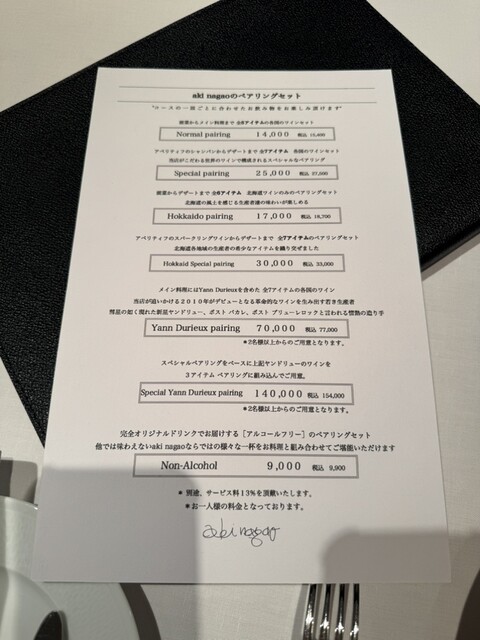 aki nagaoのペアリングセット
"コースの一皿ごとに合わせたお飲み物をお楽しみ頂けます"
前菜からメイン料理まで 全5アイテムの各国のワインセット
Normal pairing 14,000 税込 15,400
アペリティフのシャンパンからデザートまで 全7アイテム 各国のワインセット
当店がこだわる世界のワインで構成されるスペシャルなペアリング
Special pairing 25,000 税込 27,500
前菜からデザートまで 全6アイテム 北海道ワインのみのペアリングセット
北海道の風土を感じる生産者達の味わいが楽しめる
Hokkaido pairing 17,000 税込 18,700
アペリティフのスパークリングワインからデザートまで 全7アイテムのペアリングセット
北海道各地域の生産者の希少なアイテムを織り交ぜました
Hokkaid Special pairing 30,000 税込 33,000
メイン料理にはYann Durieuxを含めた 全7アイテムの各国のワイン
当店が追いかける2010年がデビューとなる革命的なワインを生み出す若き生産者
彗星の如く現れた新星ヤンドリュー、ポスト パカレ、ポスト プリューレロックと言われる情熱の造り手
Yann Durieux pairing 70,000 税込 77,000
*2名様以上からのご用意となります。
スペシャルペアリングをベースに上記ヤンドリューのワインを
3アイテム ペアリングに組込んでご用意。
Special Yann Durieux pairing 140,000 税込 154,000
*2名様以上からのご用意となります。
完全オリジナルドリンクでお届けする [アルコールフリー] のペアリングセット
他では味わえないaki nagaoならではの様々な一杯をお料理と組み合わせてご堪能いただけます
Non-Alcohol 9,000 税込 9,900
* 別途、サービス料13%を頂戴いたします。
*お一人様の料金となっております。
aki nagao